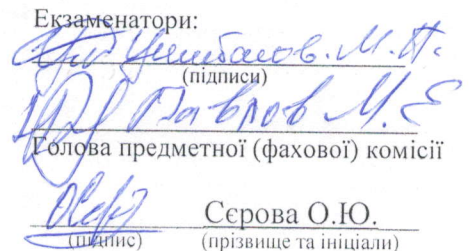 Екзаменатори:
М.П.
(підписи)
Павлов М.Є
Голова предметної (фахової) комісії
Сєрова О.Ю.
(підпис) (прізвище та ініціали)